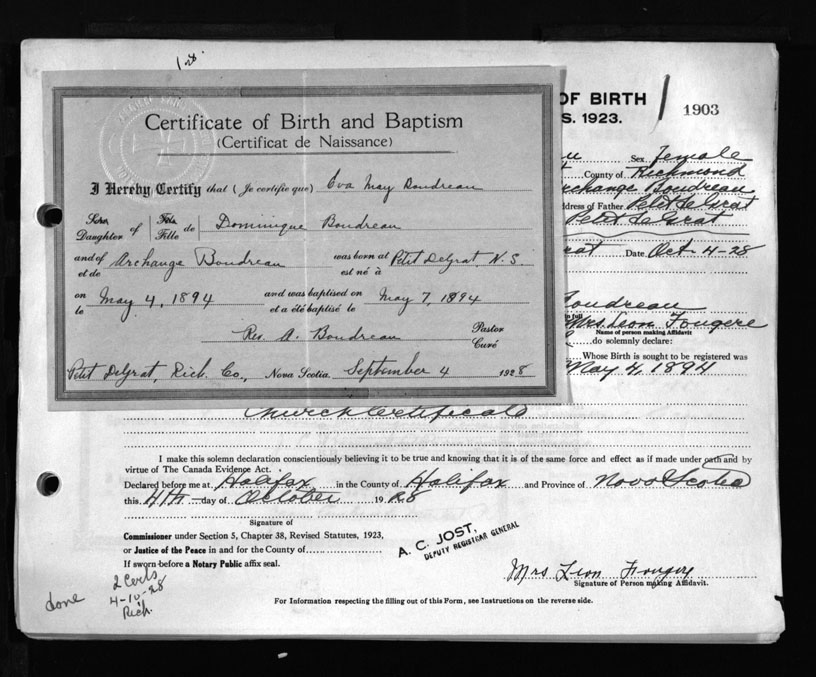 128
Certificate of Birth and Baptism
(Certificat de Naissance)
I Hereby Certify that (Je certifie que) Eva May Boudreau
Sex
Daughter of Fils Fille de Dominique Boudreau
and of et de Archange Boudreau was born at est né à Petit Degrat, N.S.
on le May 4, 1894 and was baptised on et a été baptisé le May 7, 1894
Rev. A. Boudreau Pastor Curé
Petit Degrat, Rich. Co., Nova Scotia, September 4 1928
OF BIRTH
S. 1923.
1903
au Sex Female
t County of Richmond
Archange Boudreau
ddress of Father Petit De Grat
Petit De Grat
rat Date Oct 4-28
Boudreau
in full
Mrs. Leon Fougere
Name of person making Affidavit
do solemnly declare:
Whose Birth is sought to be registered was
May 4, 1894
Church Certificate
I make this solemn declaration conscientiously believing it to be true and knowing that it is of the same force and effect as if made under oath and by
virtue of The Canada Evidence Act.
Declared before me at Halifax in the County of Halifax and Province of Nova Scotia
this 4th day of October 1928
Signature of
Commissioner under Section 5, Chapter 38, Revised Statutes, 1923,
or Justice of the Peace in and for the County of
If sworn before a Notary Public affix seal.
A. C. JOST,
DEPUTY REGISTRAR GENERAL
Mrs Leon Fougere
Signature of Person making Affidavit.
done
2 Certs
4-10-28
Rich.
For Information respecting the filling out of this Form, see Instructions on the reverse side.